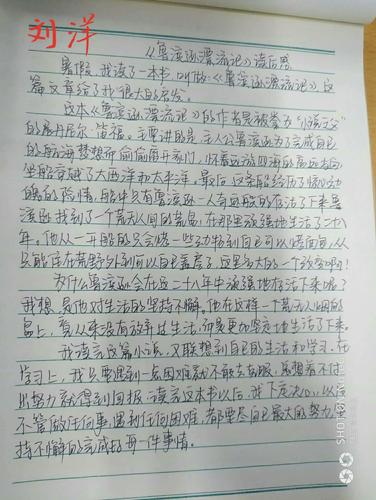 刘洋
《鲁滨逊漂流记》读后感
暑假,我读了一本书,叫做《鲁滨逊漂流记》,这
篇文章给了我很大的启发。
这本《鲁滨逊漂流记》的作者是被奉为“小说之父”
的丹尼尔·笛福。主要讲的是:主人公鲁滨逊为了完成自己
的航海梦想而偷偷离开家门,怀着远游四海的高远志向,
坐船穿越了大西洋和太平洋。最后,这条船经历了惊心动
魄的险情,船中只有鲁滨逊一人奇迹般的存活了下来。鲁
滨逊找到了一个荒无人烟的荒岛,在那里顽强地生活了二十八
年。他从一开始的只会烤一些动物到自己可以烤面包,从
只能住在荒野外到可以自己盖房子,这是多大的一个改变啊!
为什么鲁滨逊会在这二十八年中顽强地存活下来呢?
我想,是他对生活的坚持不懈。他在这样一个荒无人烟的
岛上,看从来没有放弃过生活,而是更加坚定地生活了下来。
我读完这篇小说,又联想到自己的生活和学习。在
学习上,我只要遇到一点困难就不敢去克服,总想着不付
出努力就得到回报。读完这本书以后,我下定决心,以后
不管做任何事,遇到任何困难,都要尽自己最大的努力,坚
持不懈的完成好每一件事情。
SHOT ON